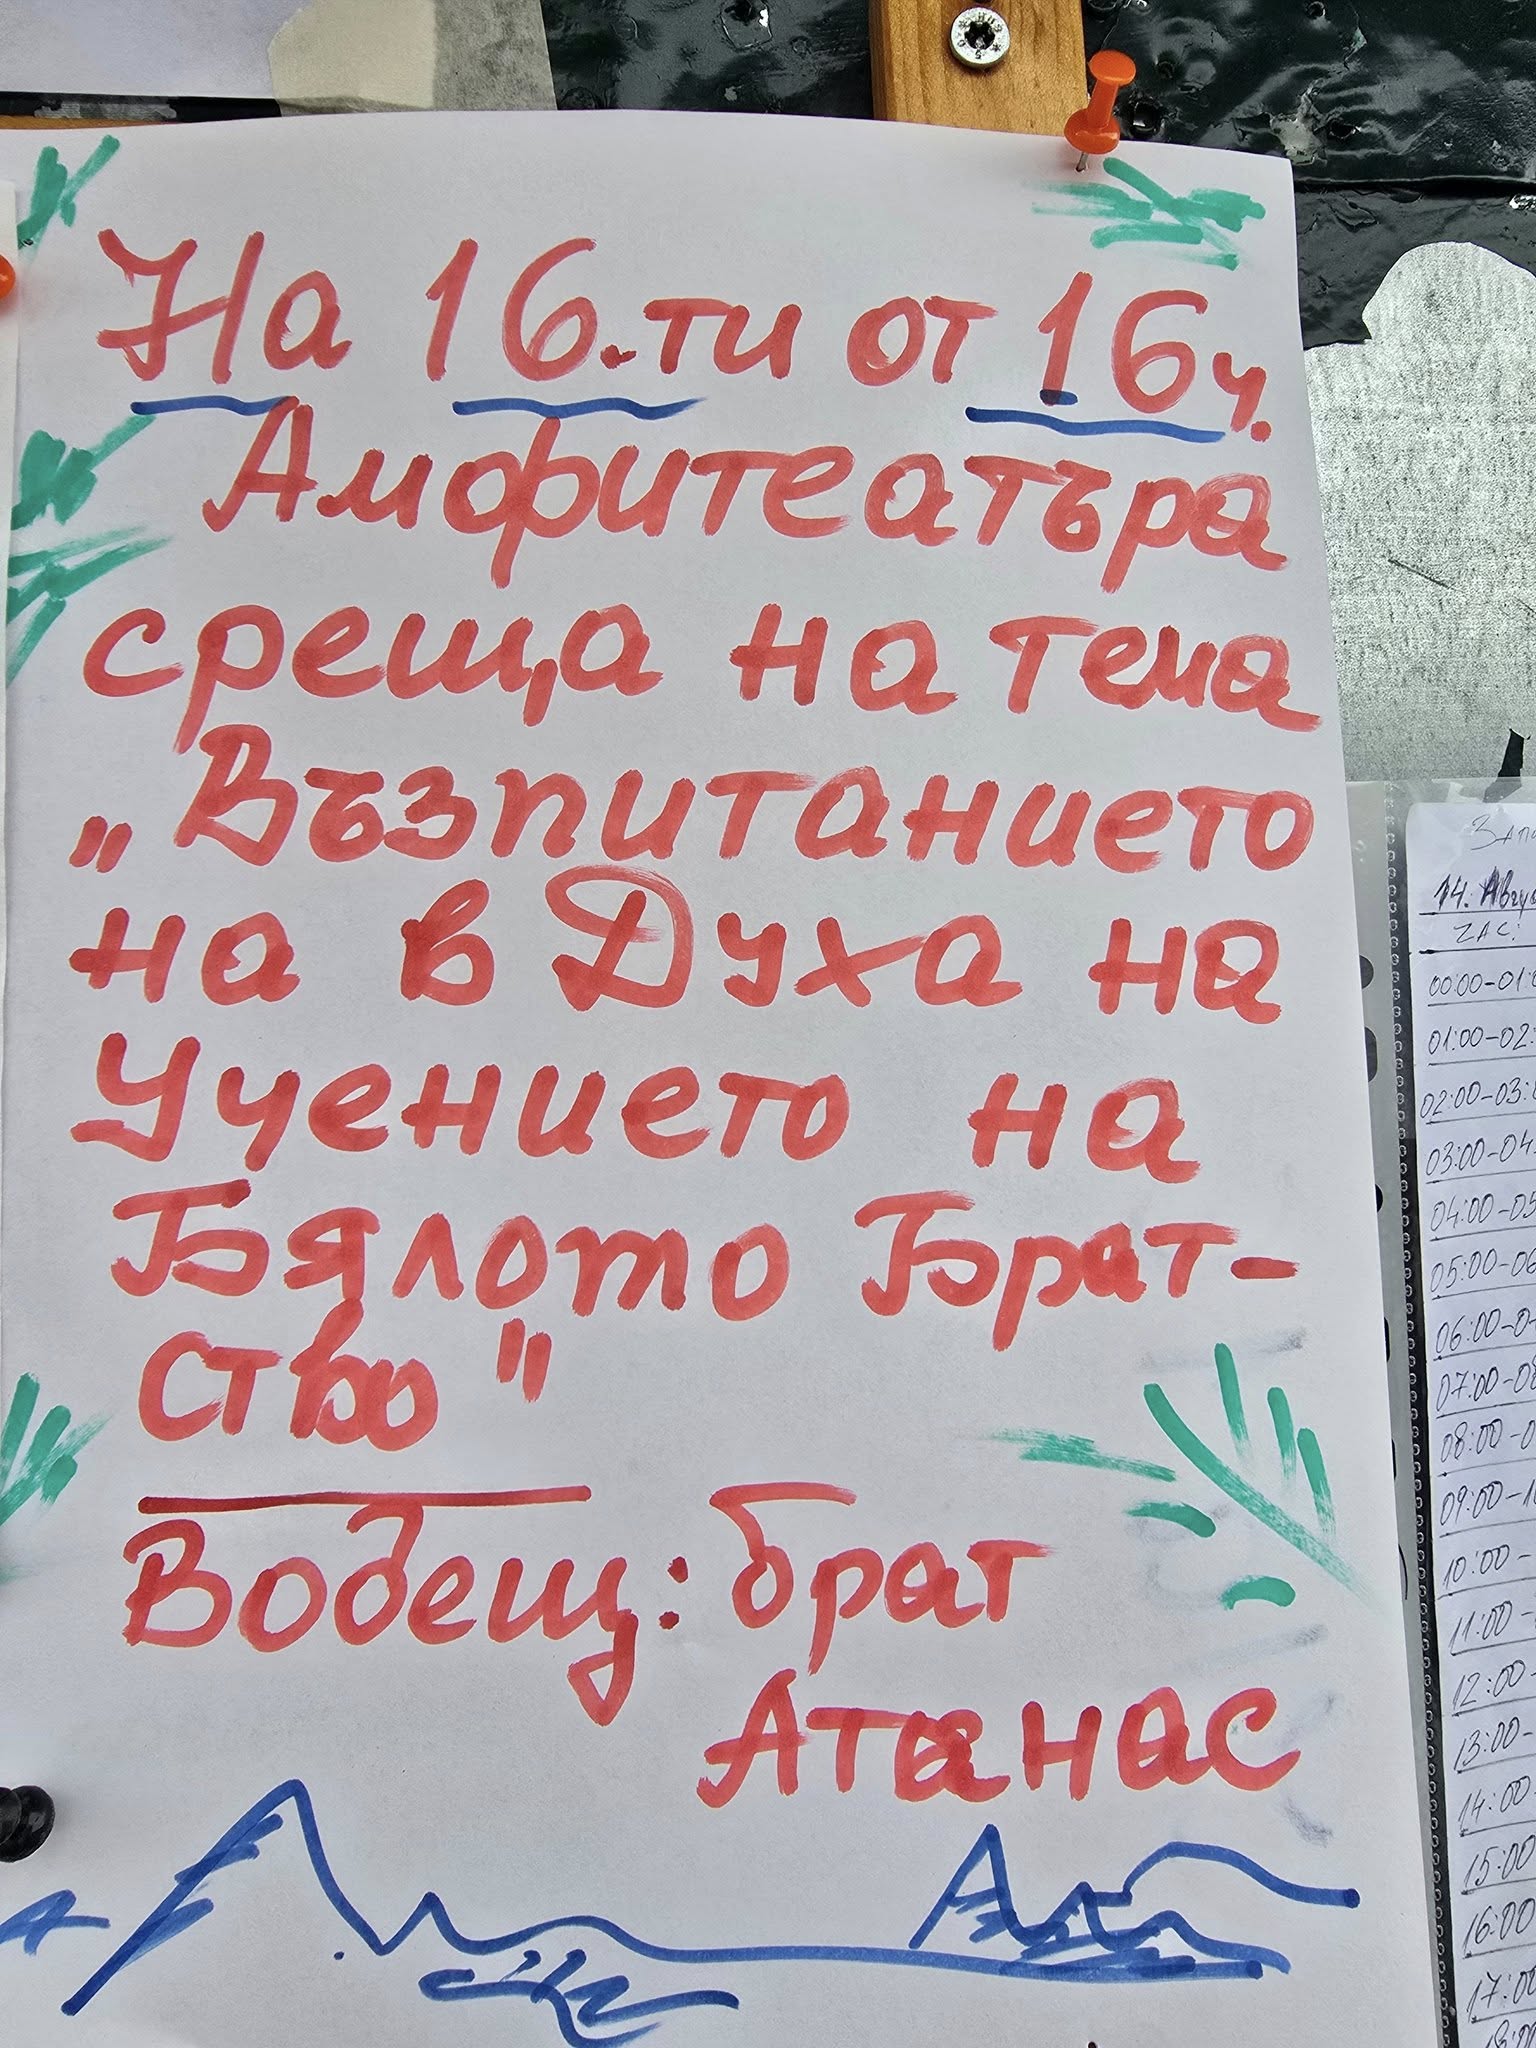 На 16.ти от 16ч.
Амфитеатъра
среща на тема
„Възпитанието
на в Духа на
Учението на
Бялото Брат-
ство"
Водещ: брат
Атанас
14. Авгу
00:00-01:
01:00-02:
02:00-03:
03:00-04:
04:00-05
05:00-06
06:00-0
07:00-08
08:00-0
09:00-1
10:00-
11:00-
12:00-
13:00-
14:00
15:00
16:00
17:00